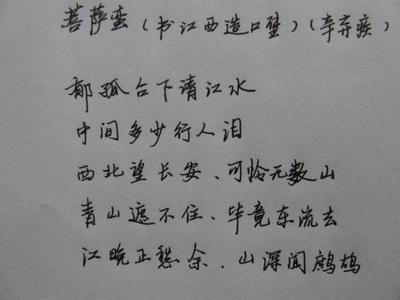 菩萨蛮(书江西造口壁)(辛弃疾)
郁孤台下清江水
中间多少行人泪
西北望长安、可怜无数山
青山遮不住、毕竟东流去
江晚正愁余、山深闻鹧鸪